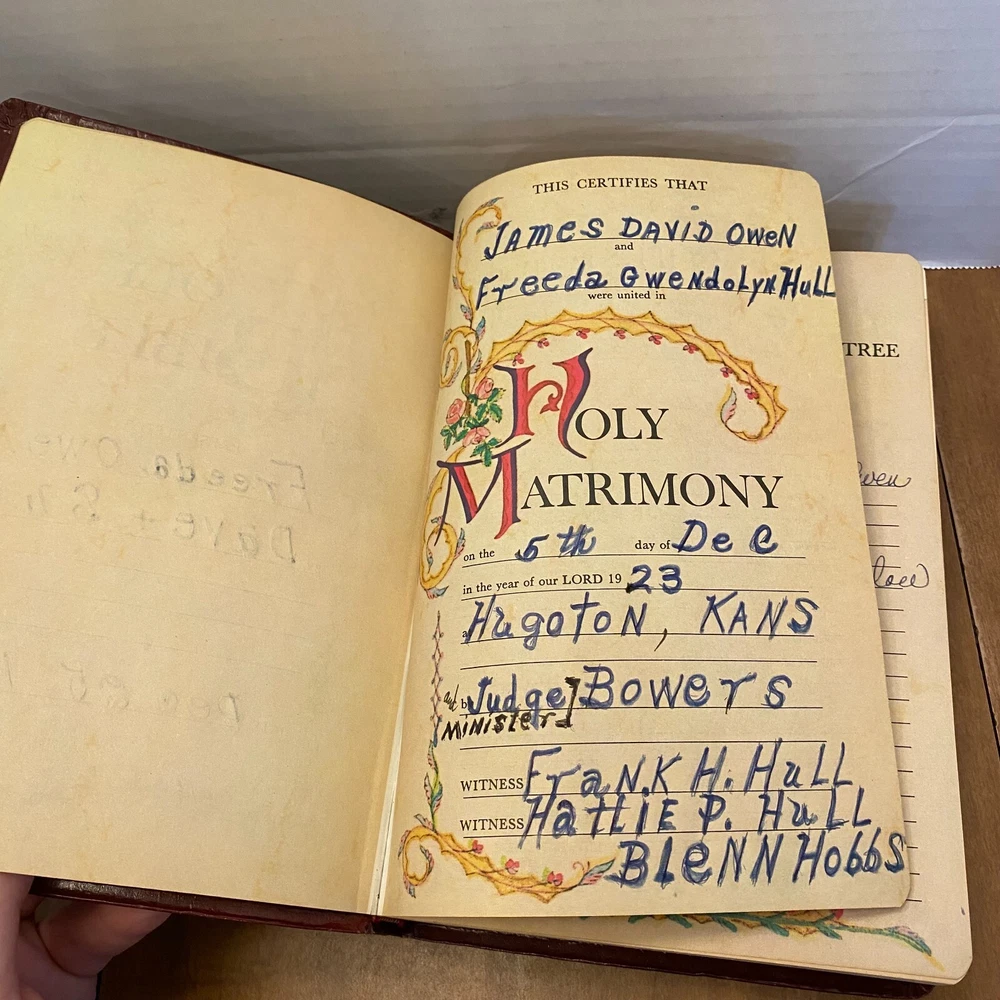 THIS CERTIFIES THAT
JAMES DAVID OWEN
and
Freeda Gwendolyn Hull
were united in
HOLY
MATRIMONY
on the 5th day of Dec
in the year of our LORD 1923
Hugoton, KANS
and by Judge] Bowers
Minister]
WITNESS Frank H. Hull
WITNESS Hattie P. Hull
Blenn Hobbs
TREE